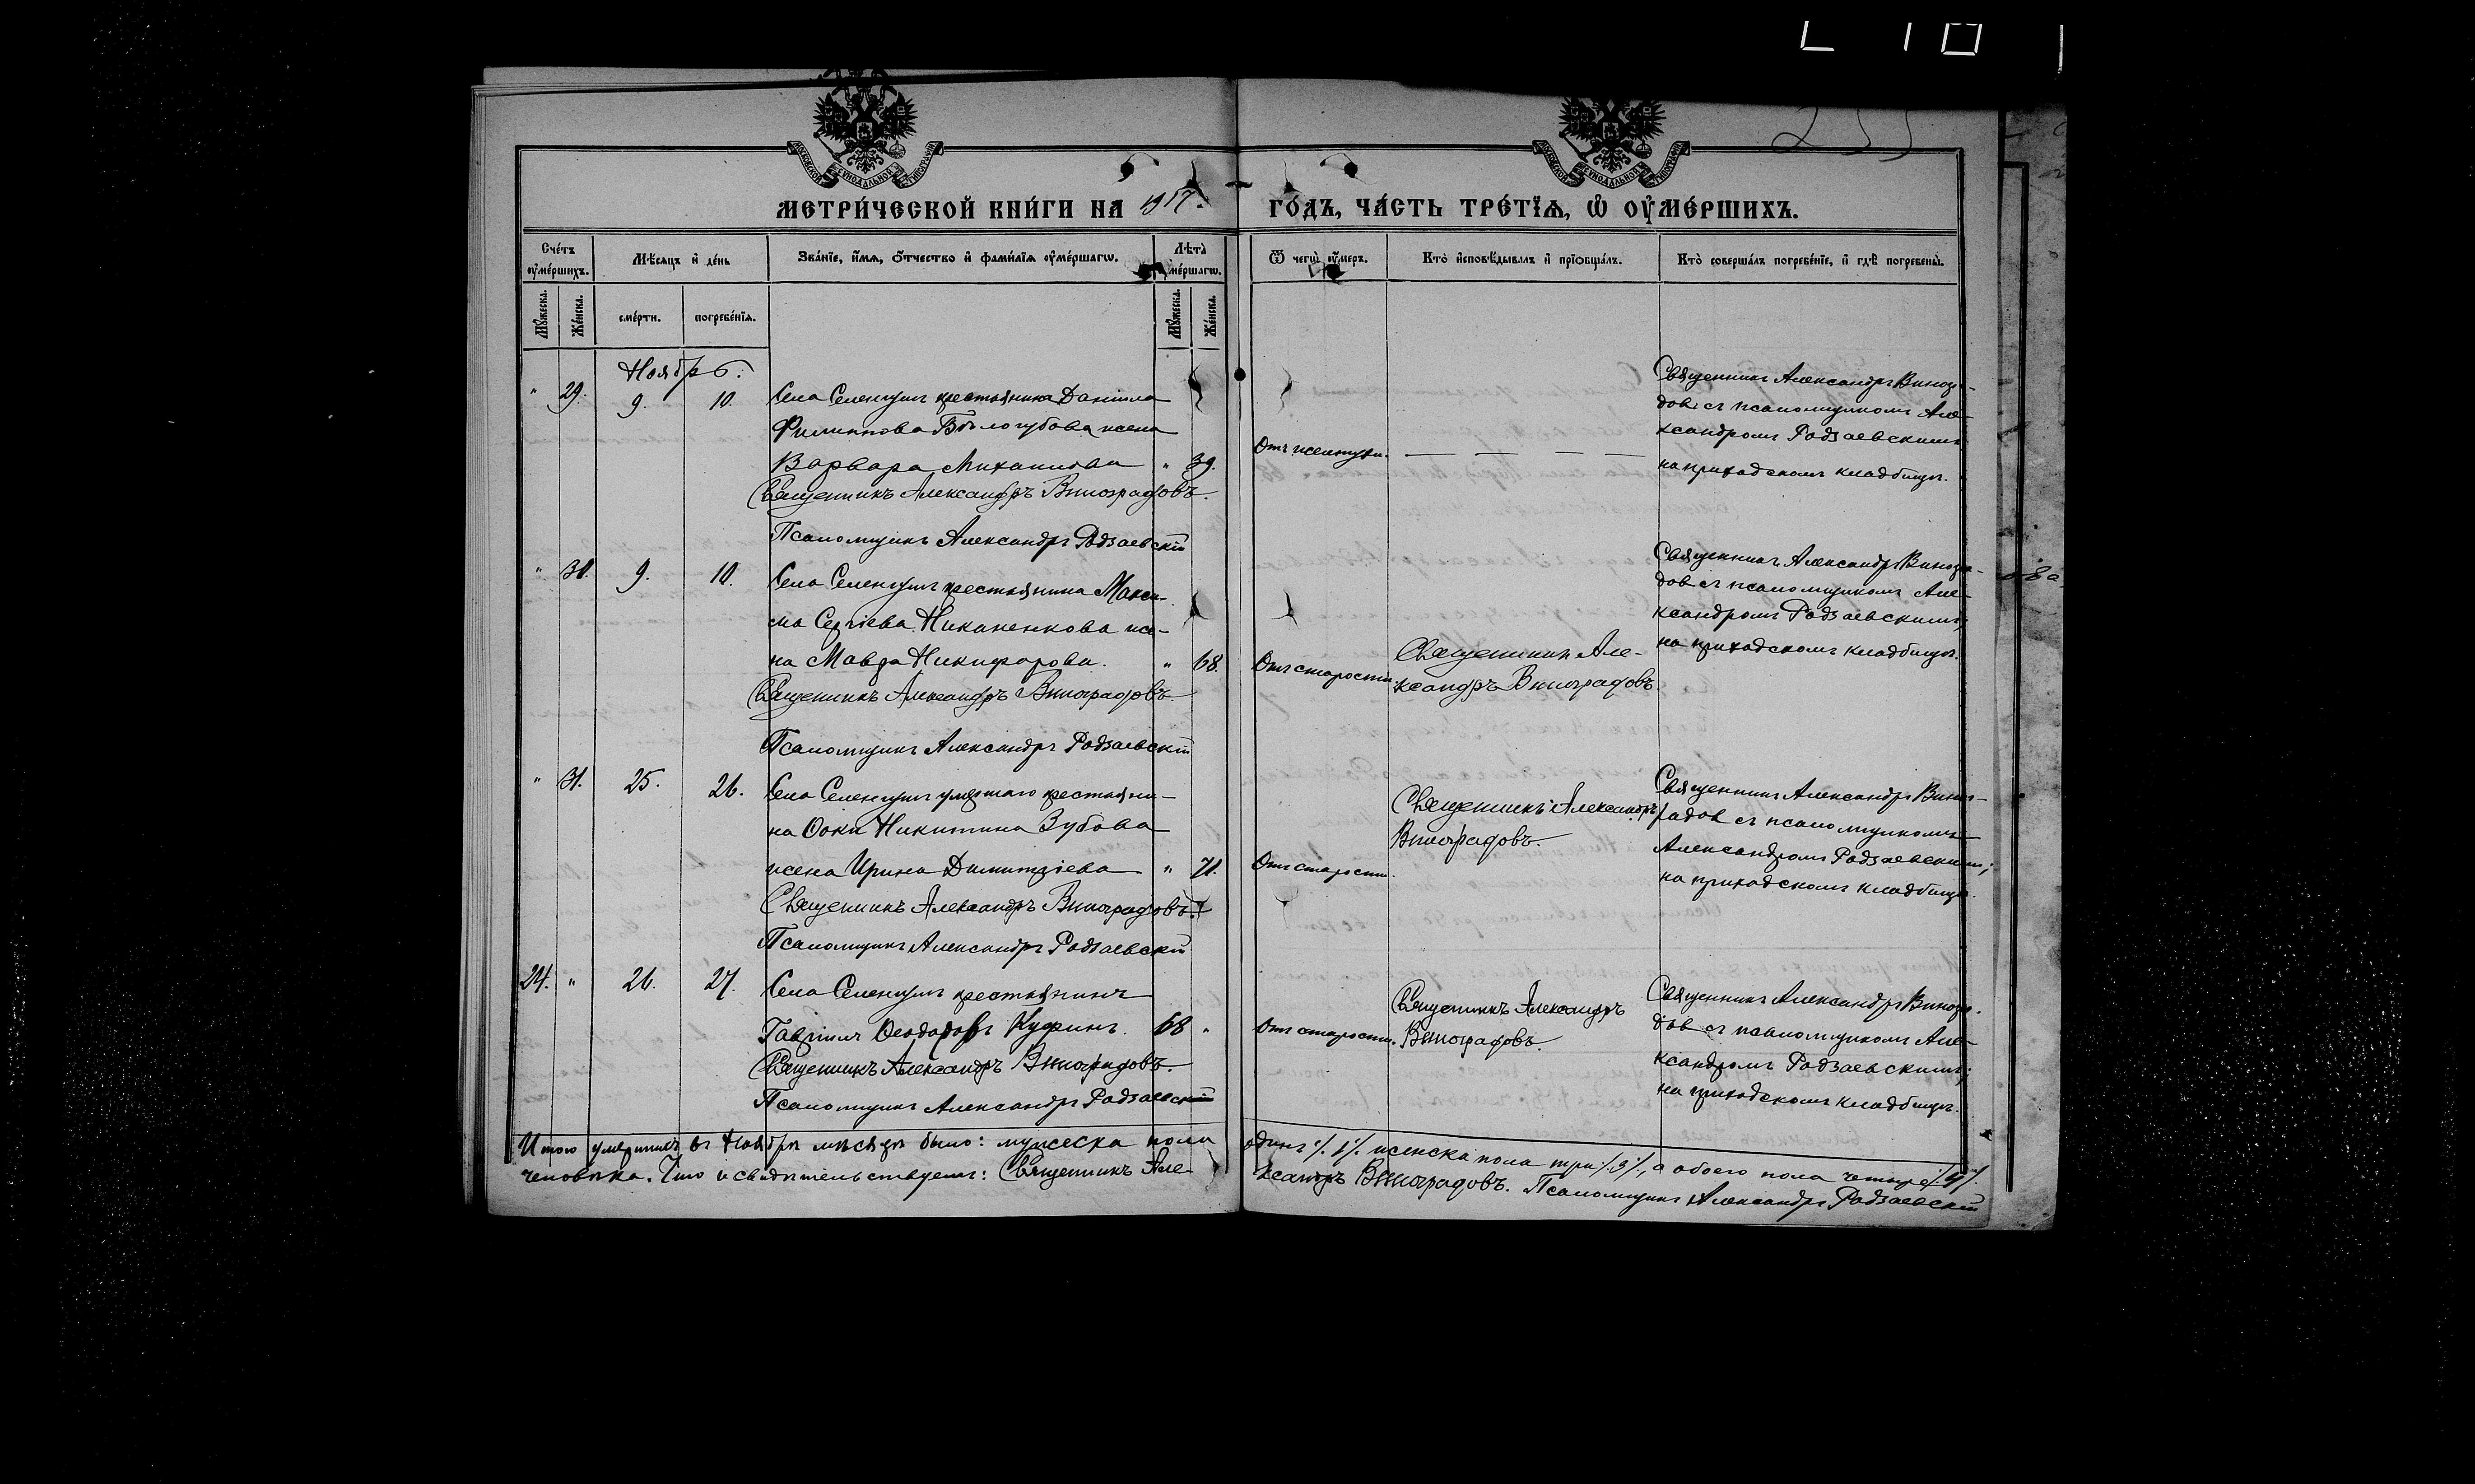 МОСКОВСКОЙ СѴНОДАЛЬНОЙ ТИПОГРАФІИ
МОСКОВСКОЙ СѴНОДАЛЬНОЙ ТИПОГРАФІИ
МЕТРИ́ЧЕСКОЙ КНИ́ГИ НА 1917. ГО́ДЪ, ЧА́СТЬ ТРЕ́ТЇѦ, Ѽ ОУ҆МЕ́РШИХЪ.
Сче́тъ оу҆ме́ршихъ.
Мѣ́сяцъ и҆ де́нь
Зва́нїе, и҆́мѧ, ѻ҆́тчество и҆ фами́лїѧ оу҆ме́ршагѡ.
Лѣ́та̀ оу҆ме́ршагѡ.
Ѿ чегѡ̀ оу҆́меръ.
Кто̀ и҆сповѣ́дывалъ и҆ прїѻбща́лъ.
Кто̀ соверша́лъ погребе́нїе, и҆ гдѣ̀ погребены̀.
Мꙋ́жеска. Же́нска.
сме́рти. погребе́нїѧ.
Мꙋ́жеска. Же́нска.
Ноябрь:
" 29. 9. 10. Села Селенгушъ крестьянина Даніила
Филиппова Бѣлогубова жена
Варвара Михаилова " 39.
Священникъ Александръ Виноградовъ.
Псаломщикъ Александръ Радзаевскій
— — — —
Священникъ Александръ Виногра-
довъ съ псаломщикомъ Але-
ксандромъ Радзаевскимъ
на приходскомъ кладбищѣ.
" 30. 9. 10. Села Селенгушъ крестьянина Макси-
ма Сергіева Никаненкова же-
на Мавра Никифорова. " 68.
Священникъ Александръ Виноградовъ
Псаломщикъ Александръ Радзаевскій
Отъ старости.
Священникъ Але-
ксандръ Виноградовъ.
Священникъ Александръ Виногра-
довъ съ псаломщикомъ Але-
ксандромъ Радзаевскимъ;
на приходскомъ кладбищѣ.
" 31. 25. 26. Села Селенгушъ умершаго крестьяни-
на Ѳоки Никитина Зубова
жена Ирина Димитріева " 71.
Священникъ Александръ Виноградовъ.
Псаломщикъ Александръ Радзаевскій
Отъ старости.
Священникъ Александръ
Виноградовъ.
Священникъ Александръ Виног-
радовъ съ псаломщикомъ
Александромъ Радзаевскимъ;
на приходскомъ кладбищѣ.
24. " 26. 27. Села Селенгушъ крестьянинъ
Гавріилъ Ѳеодоровъ Кудринъ. 68 "
Священникъ Александръ Виноградовъ.
Псаломщикъ Александръ Радзаевскій
Отъ старости.
Священникъ Александръ
Виноградовъ.
Священникъ Александръ Виногра-
довъ съ псаломщикомъ Але-
ксандромъ Радзаевскимъ;
на приходскомъ кладбищѣ.
Итого умершихъ въ Ноябрѣ мѣсяцѣ было: мужеска пола одинъ /.1/. женска пола три /3/, а обоего пола четыре /.4/.
человѣка. Что и свидѣтельствуемъ: Священникъ Александръ Виноградовъ. Псаломщикъ Александръ Радзаевскій